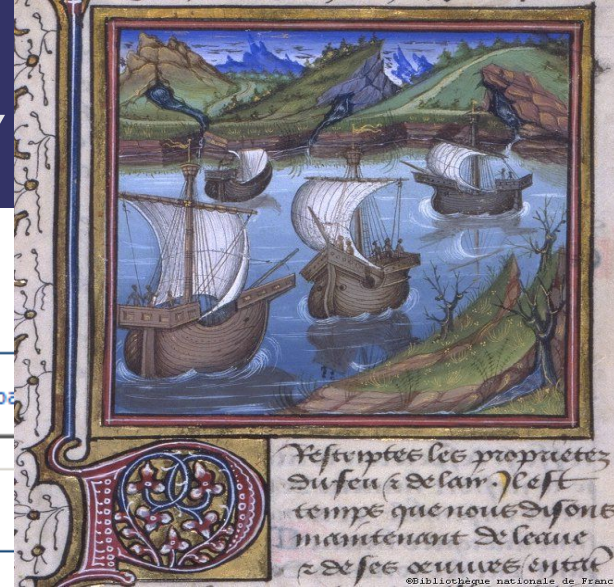 Rescriptes les proprietez
du feu ⁊ de lair. Il est
temps que nous disons
maintenant de leaue
⁊ de ses œuures en tāt
©Bibliothèque nationale de Franc